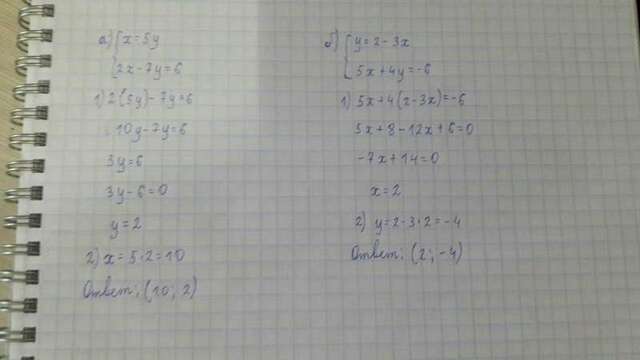 а) { x = 5y
2x - 7y = 6
1) 2(5y) - 7y = 6
10y - 7y = 6
3y = 6
3y - 6 = 0
y = 2
2) x = 5 · 2 = 10
Ответ: (10; 2)
б) { y = 2 - 3x
5x + 4y = -6
1) 5x + 4(2 - 3x) = -6
5x + 8 - 12x + 6 = 0
-7x + 14 = 0
x = 2
2) y = 2 - 3 · 2 = -4
Ответ: (2; -4)